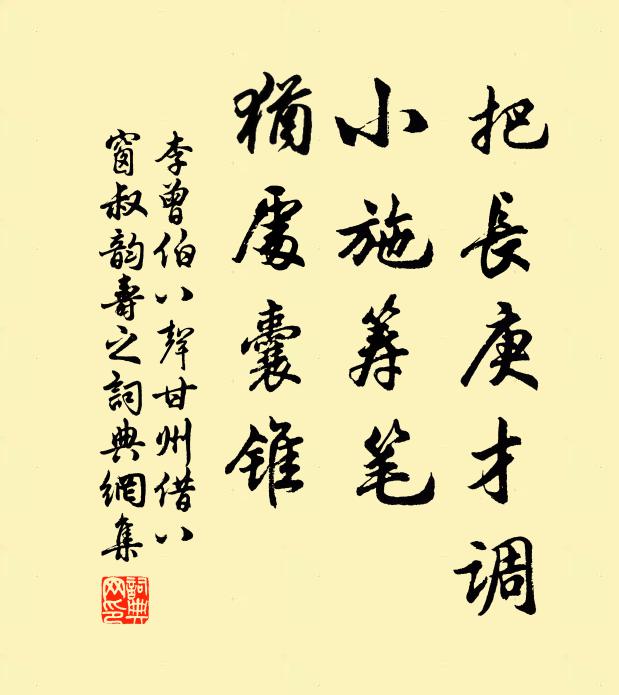 把長庚才调
小施筹笔
猶處囊锥
李曾伯八聲甘州借八
窗叔韵壽之詞典網集
詞典网印